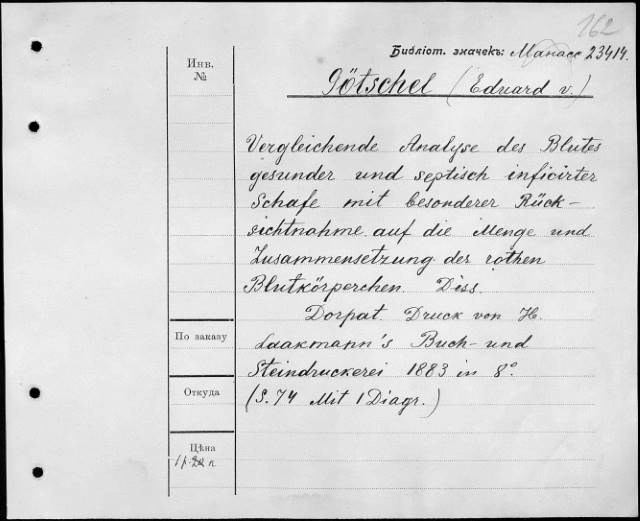 162
Библіот. значекъ: Манасс 23414.
Инв.
№
Götschel (Eduard v.)
Vergleichende Analyse des Blutes
gesunder und septisch inficirter
Schafe mit besonderer Rück-
sichtnahme auf die Menge und
Zusammensetzung der rothen
Blutkörperchen. Diss.
Dorpat. Druck von H.
Laakmann's Buch- und
Steindruckerei 1883 in 8°.
(S. 74 Mit 1 Diagr.)
По заказу
Откуда
Цѣна